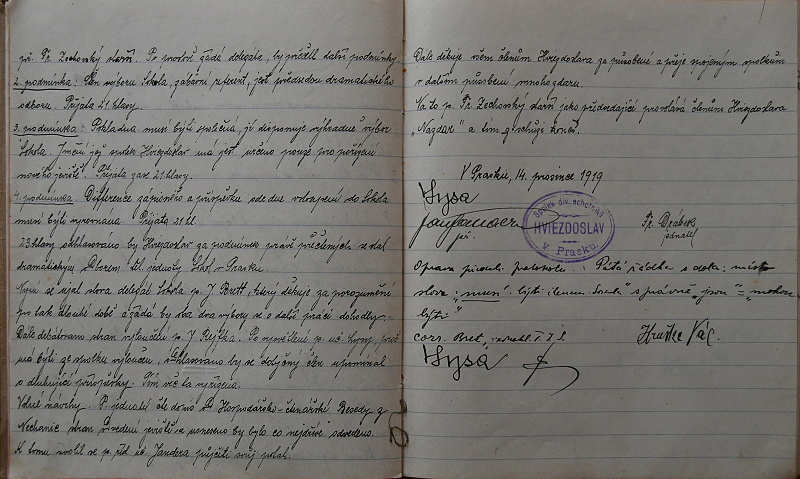 př. Fr. Zechovský starší. Po prosloč žádá delegáta, by přečetl další podmínky
2. podmínka: Člen výboru Sokola, zábavní referent, jest předsedou dramatického
odboru. Přijata 21 hlasy.
3. podmínka: Pokladna musí býti společná, jí disponuje výhradně výbor
Sokola. Jmění jež spolek Hviezdoslav má jest určeno pouze pro pořízení
nového jeviště. Přijata zase 21 hlasy.
4. podmínka. Difference zápisného a příspěvku ode dne vstoupení do Sokola
musí býti vyrovnana. Přijata 21 hl.
23 hlasy odhlasováno by Hviezdoslav za podmínek právě přečtených se stal
dramatickým odborem těl. jednoty Sokol v Prasku.
Nyní se ujal slova delegát Sokola p. J Brett, který děkuje za porozumění
po tak dlouhé době a žádá by oba dva výbory se o další práci dohodly.
Dále debatováno stran vyloučení p. J Rejfka. Po vysvětlení p. uč. Lysy, proč
má býti ze spolku vyloučen, odhlasováno by se dotyčný člen upomínal
o dluhující příspěvky. Tím věc ta vyřízena.
Volné návrhy. P. jednatel čte dopis Hospodářsko-čtenářské Besedy z
Nechanic stran jeviště a usneseno by bylo co nejdříve odvedeno.
K tomu svolil ve p. Jandera půjčiti svůj potah.
Dále děkuje všem členům Hviezdoslava za působení a přeje spojeným spolkům
v dalším působení mnoho zdaru.
Na to p. Fr. Zechovský starší jako předsedající provolává členům Hviezdoslava
"Nazdar" a tím schůzi končí.
V Prasku, 14. prosince 1919
Lysa
Spolek div. ochotníků
HVIEZDOSLAV
v Prasku.
Fr. Drábek
jednatel
Oprava protokolu: Pátá řádka s dola: místo
slova: "musí býti členem Sokola" správně "jsou" = "mohou
býti"
Bret, T. J. S.
Hruška Vác.
Lysa